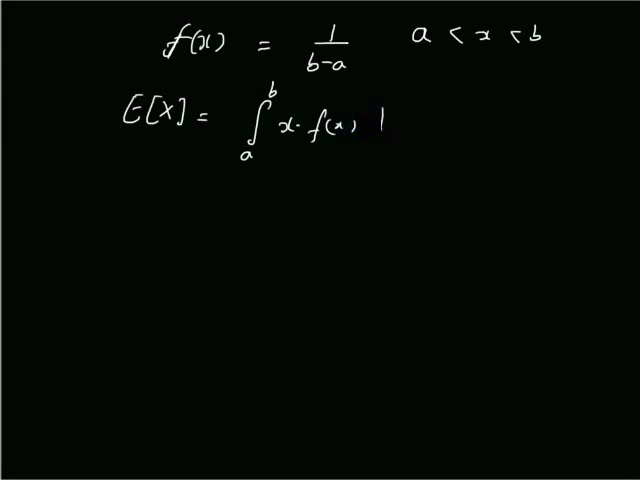 f(x) = 1/(b-a) a < x < b
E[X] = ∫_a^b x. f(x) |